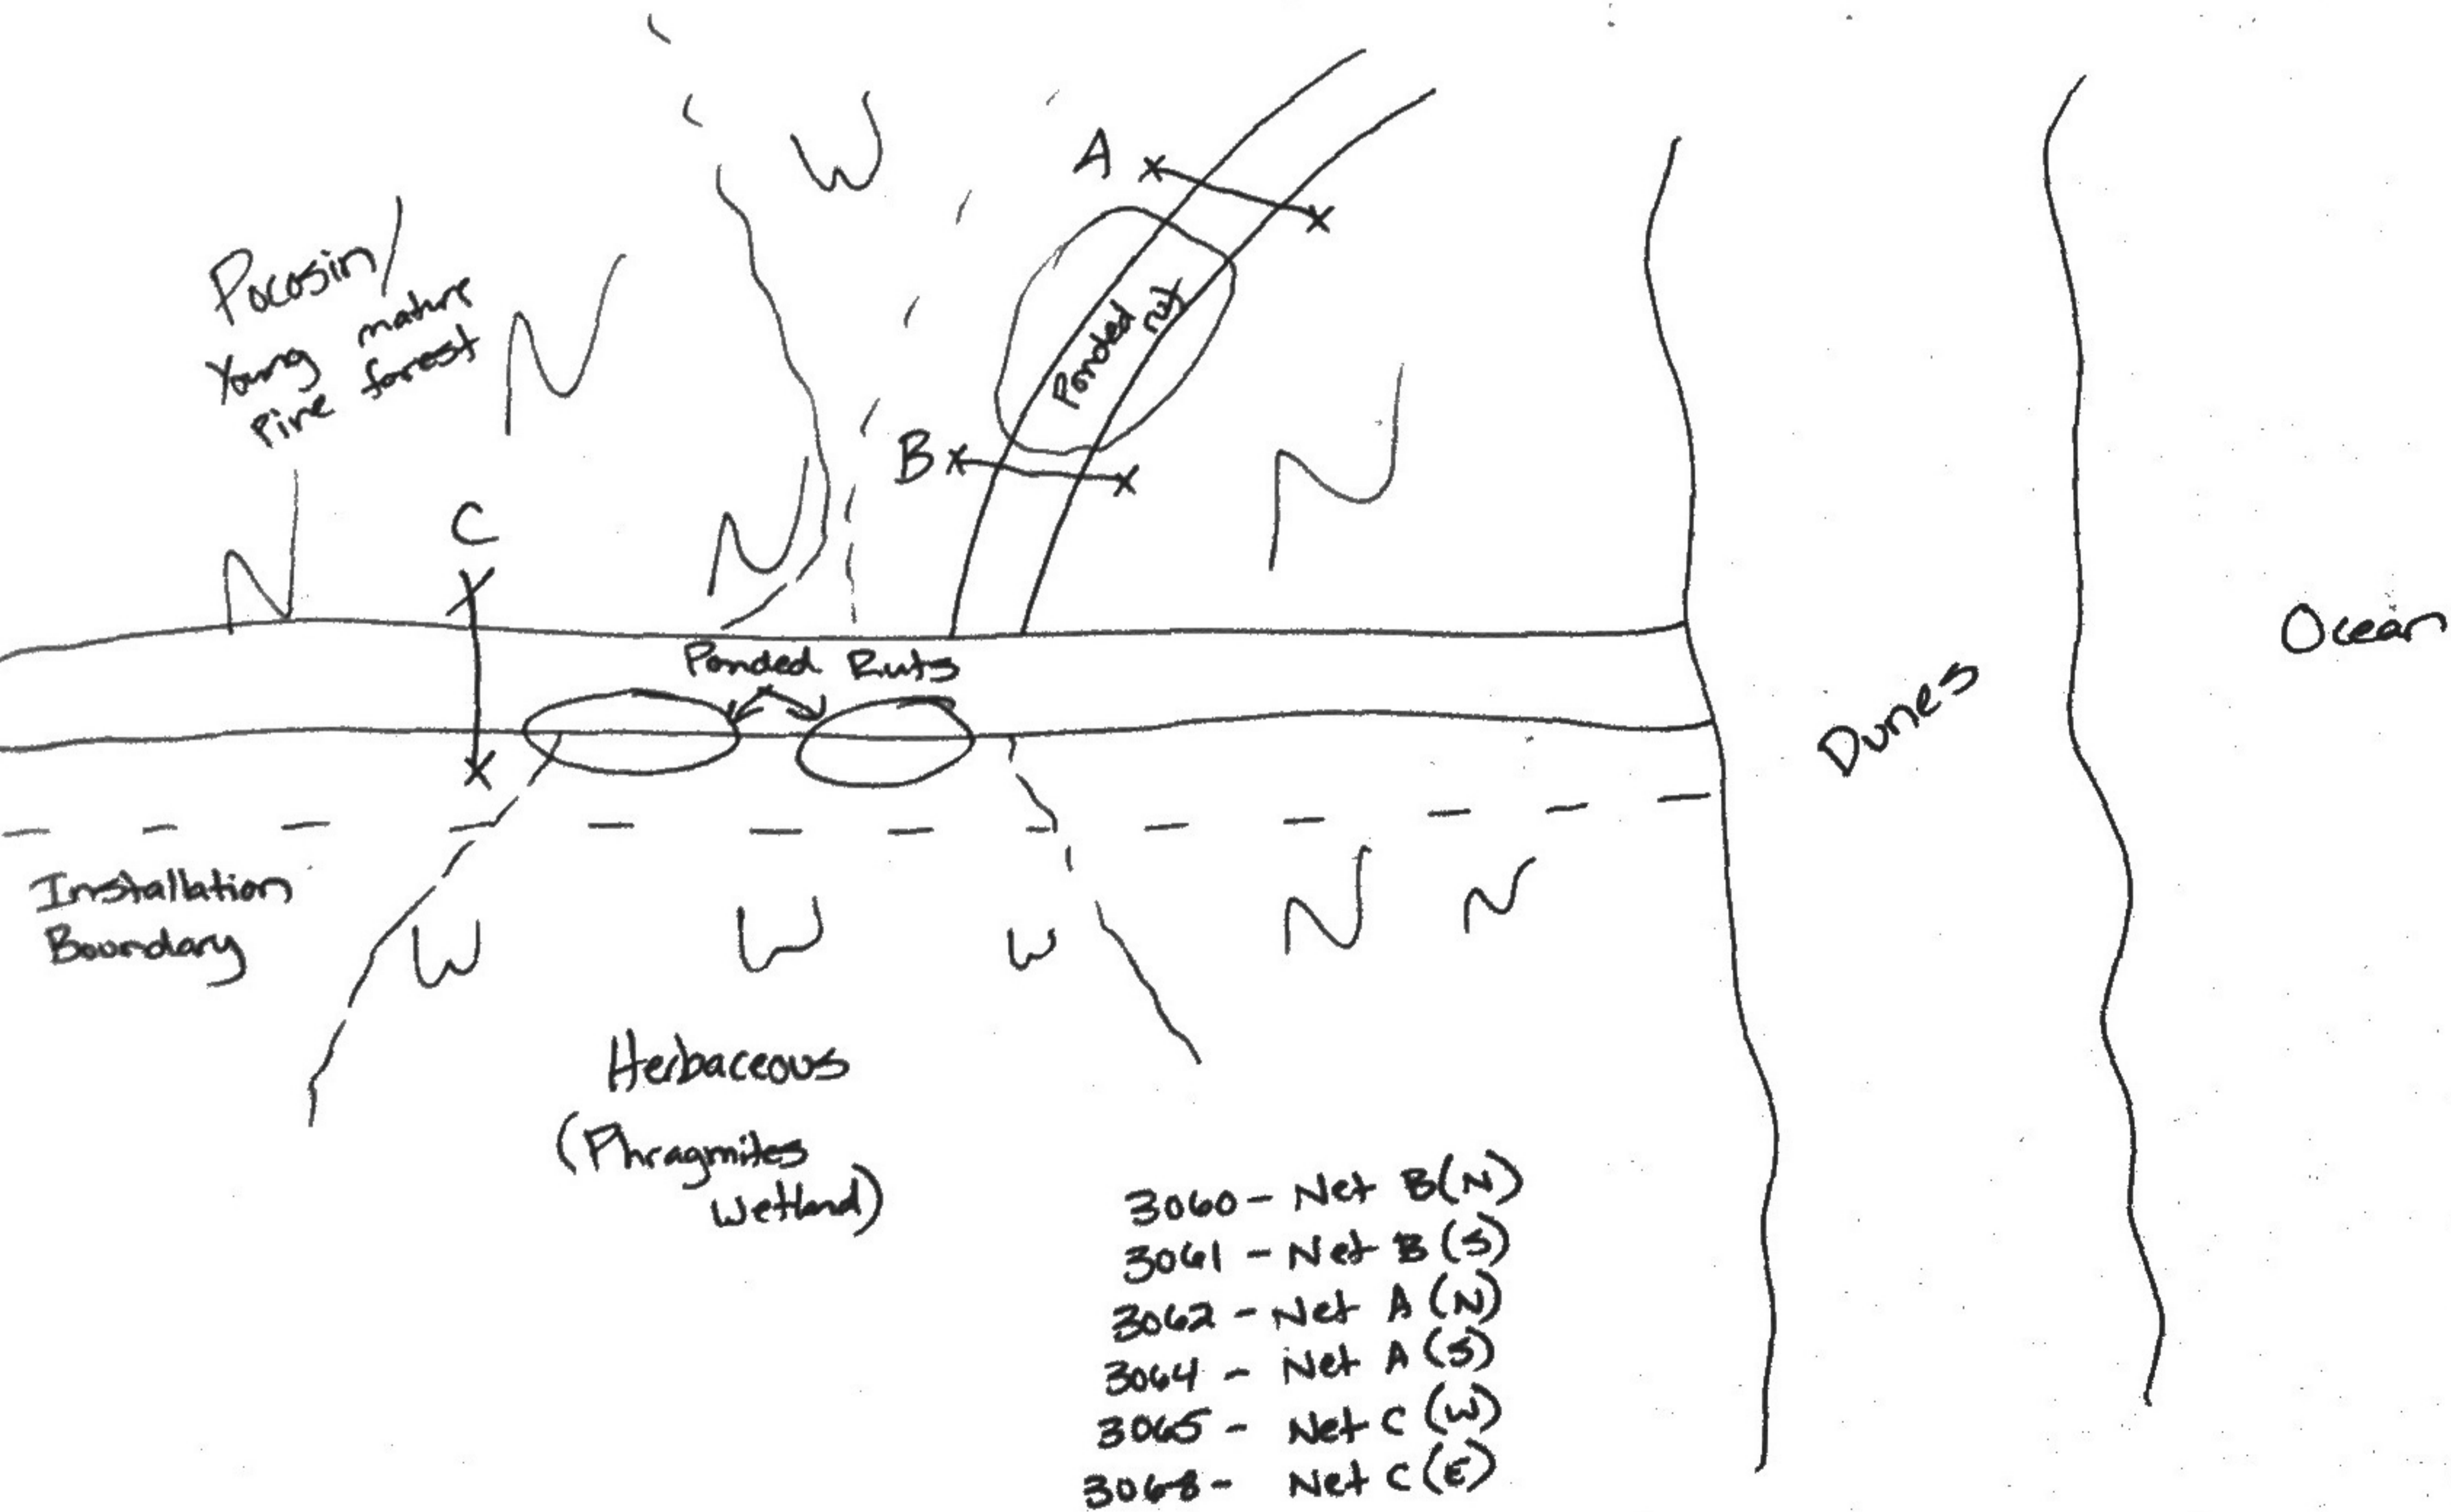 W
A
Pocosin/
Young mature
Pine forest
N
Ponded
rut
B
N
C
N
N
Ponded Ruts
Ocean
Dunes
Installation
Boundary
W
W
W
N
N
Herbaceous
(Phragmites
wetland)
3060 - Net B(N)
3061 - Net B(S)
3062 - Net A(N)
3064 - Net A(S)
3065 - Net C(W)
3068 - Net C(E)